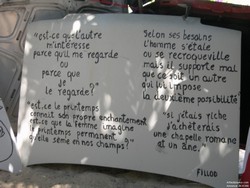 "est-ce que l'autre
m'intéresse
parce qu'il me regarde
ou
parce que
je
le regarde?"
"est-ce le printemps
connait son propre enchantement
est-ce que la femme imagine
le printemps permanent
qu'elle sème en nos champs?"
Selon ses besoins
l'homme s'étale
ou se recroqueville
mais il supporte mal
que ce soit un autre
qui lui impose
la deuxième possibilité
"si j'étais riche
j'achèterais
une chapelle romane
et un âne"
FILLOD